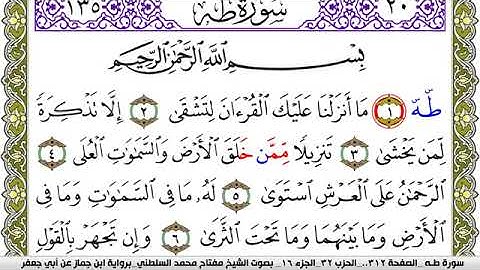 ١٣٥ سُورَةُ طه ٢٠
بِسْمِ اللَّهِ الرَّحْمَٰنِ الرَّحِيمِ
طه ١ مَا أَنزَلْنَا عَلَيْكَ الْقُرْءَانَ لِتَشْقَىٰ ٢ إِلَّا تَذْكِرَةً
لِّمَن يَخْشَىٰ ٣ تَنزِيلًا مِّمَّنْ خَلَقَ الْأَرْضَ وَالسَّمَٰوَٰتِ الْعُلَى ٤
الرَّحْمَٰنُ عَلَى الْعَرْشِ اسْتَوَىٰ ٥ لَهُ مَا فِي السَّمَٰوَٰتِ وَمَا فِي
الْأَرْضِ وَمَا بَيْنَهُمَا وَمَا تَحْتَ الثَّرَىٰ ٦ وَإِن تَجْهَرْ بِالْقَوْلِ
سورة طه_ الصفحة ٣١٢.. الحزب ٣٢_ الجزء ١٦_ بصوت الشيخ مفتاح محمد السلطني_ برواية ابن جماز عن أبي جعفر